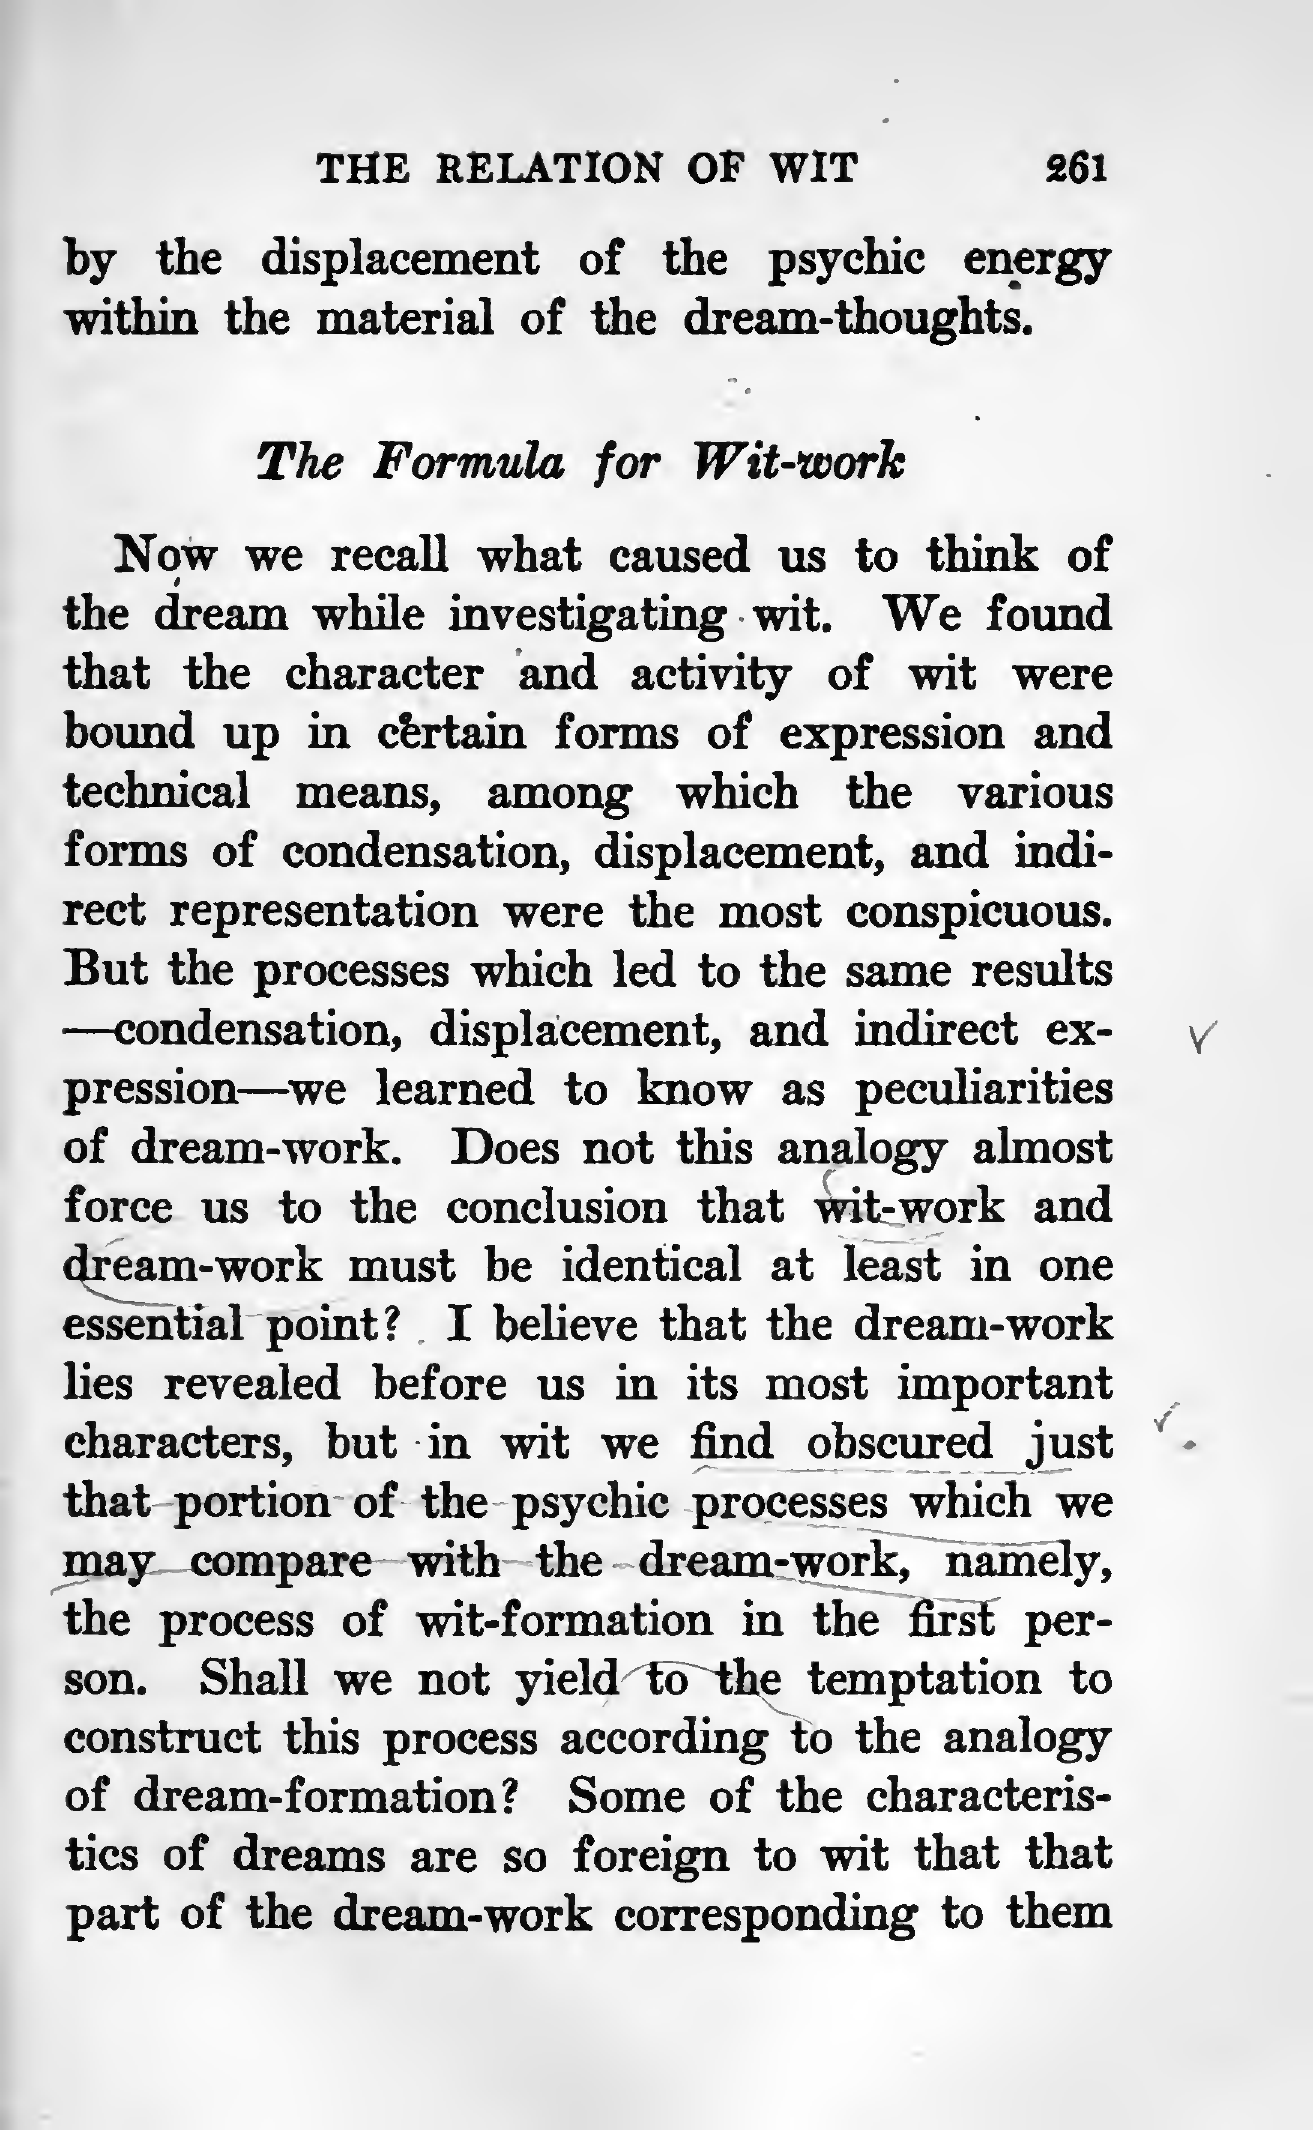 THE RELATION OF WIT 261
by the displacement of the psychic energy
within the material of the dream-thoughts.
The Formula for Wit-work
Now we recall what caused us to think of
the dream while investigating wit. We found
that the character and activity of wit were
bound up in certain forms of expression and
technical means, among which the various
forms of condensation, displacement, and indi-
rect representation were the most conspicuous.
But the processes which led to the same results
—condensation, displacement, and indirect ex-
pression—we learned to know as peculiarities
of dream-work. Does not this analogy almost
force us to the conclusion that wit-work and
dream-work must be identical at least in one
essential point? I believe that the dream-work
lies revealed before us in its most important
characters, but in wit we find obscured just
that portion of the psychic processes which we
may compare with the dream-work, namely,
the process of wit-formation in the first per-
son. Shall we not yield to the temptation to
construct this process according to the analogy
of dream-formation? Some of the characteris-
tics of dreams are so foreign to wit that that
part of the dream-work corresponding to them